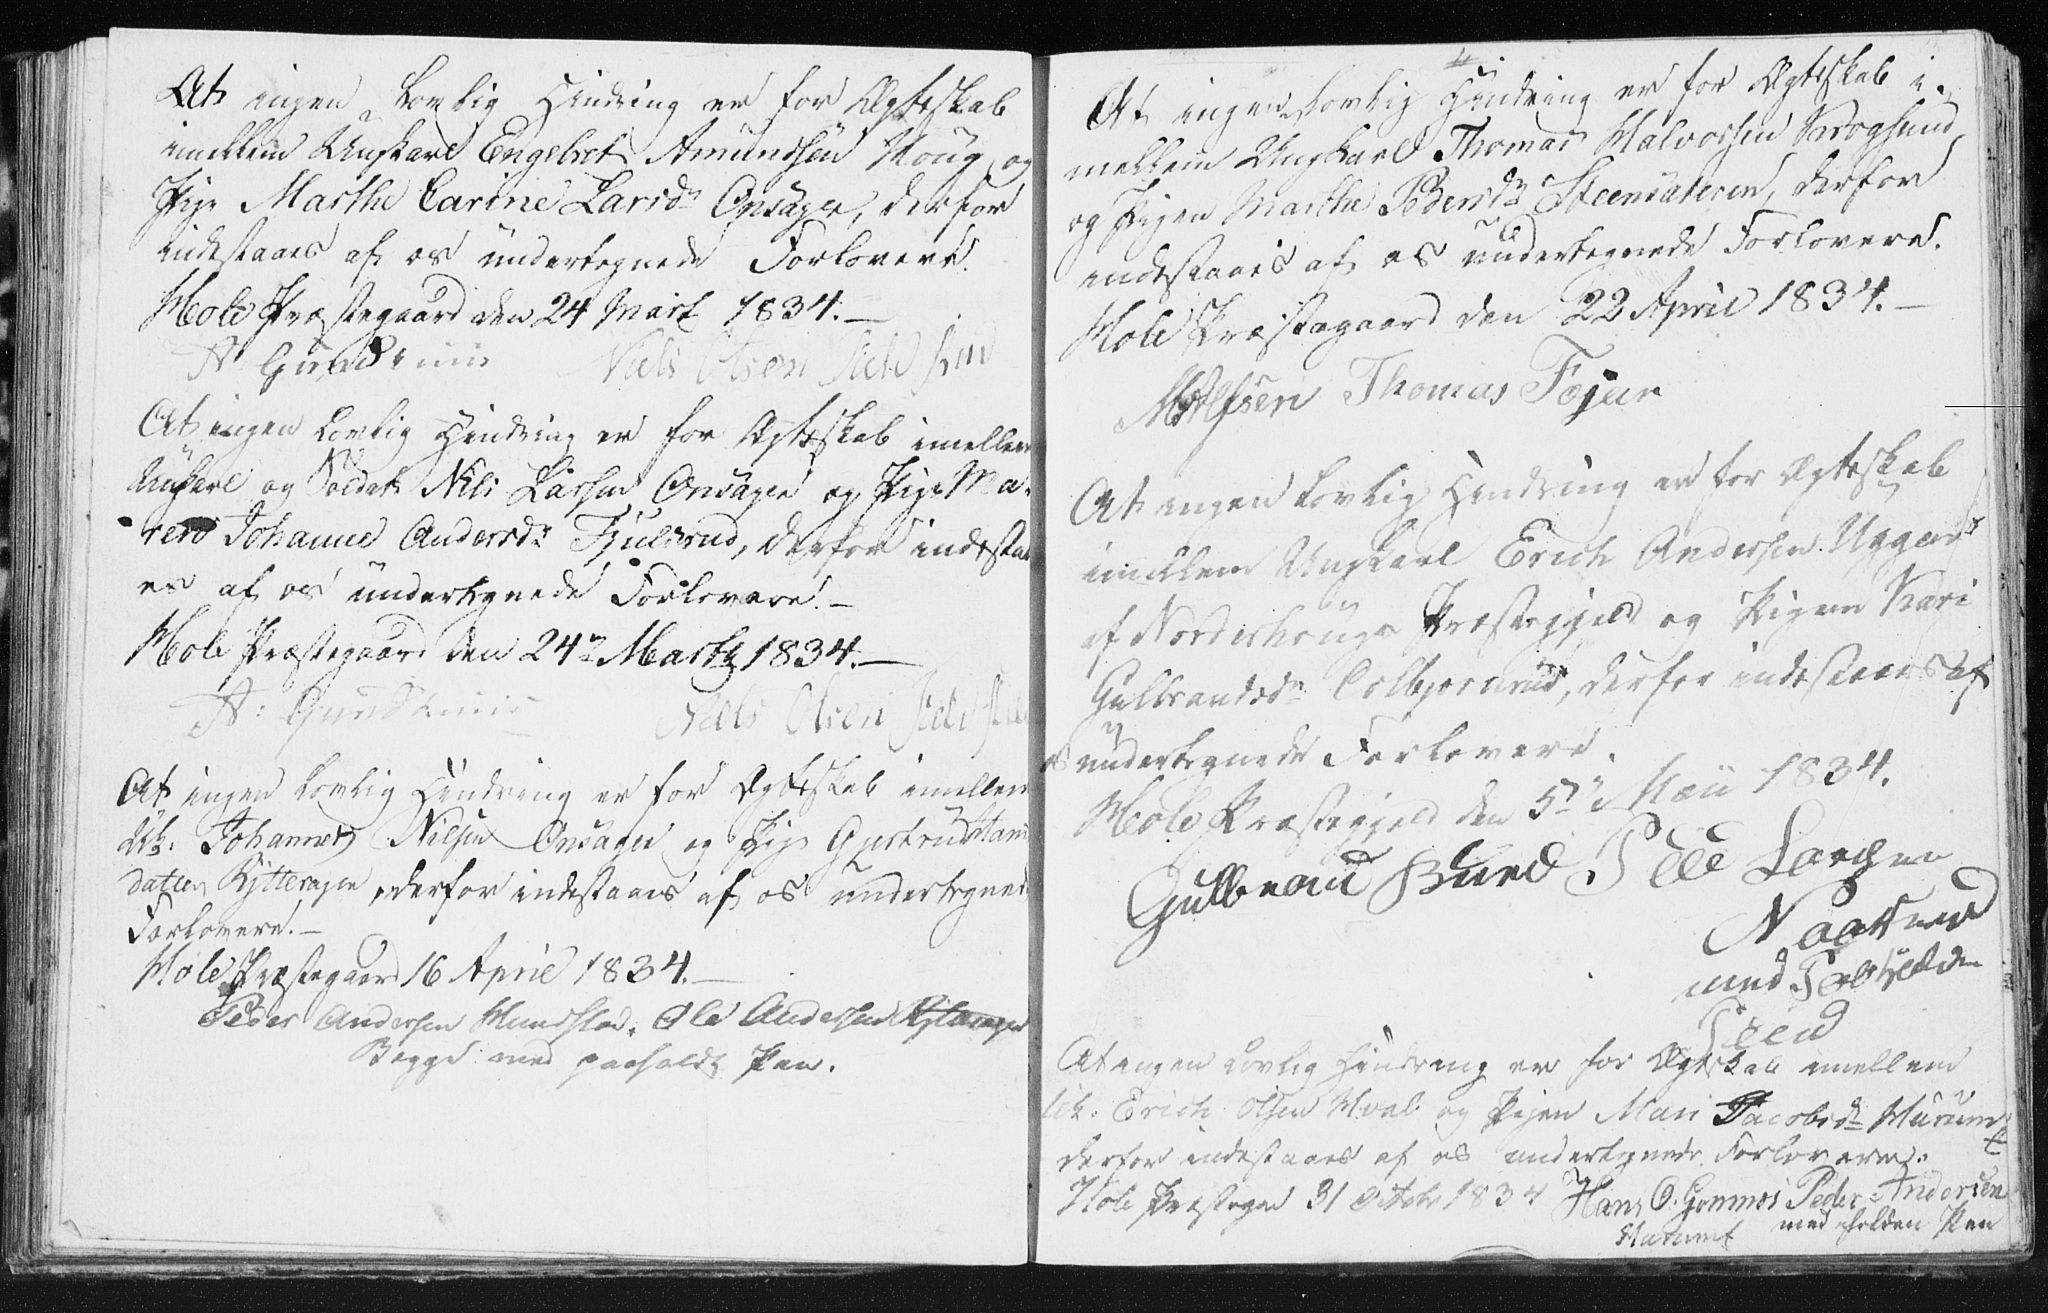 At ingen Lovlig Hindring er for Ægteskab
imellem Ungkarl Engebret Amundsen Houg og
Pige Marthe Carine Larsd: Onsager, derfor
indestaaes af os undertegnede Forlovere.
Hole Præstegaard den 24 Marts 1834.
A: Gundersen Niels Olsen
At ingen Lovlig Hindring er for Ægteskab imellem
Ungkarl og Soldat Nils Larsen Onsager og Pige Ma-
ren Johanne Andersd: Fjulsrud, derfor indestaa-
es af os undertegnede Forlovere.
Hole Præstegaard den 24de Marts 1834.
A: Niels Olsen
At ingen Lovlig Hindring er for Ægteskab imellem
Uk. Johannes Nielsen Onsager og Pige Gjertrud Hans
datter Rytterager, derfor indestaaes af os undertegnede
Forlovere.
Hole Præstegaard 16 April 1834.
Peder Andersen Mundstad. Ole Andersen Rytterager
Begge med paaholdt Pen.
At ingen Lovlig Hindring er for Ægteskab i-
mellem Ungkarl Thomas Halvorsen Krogsund,
og Pigen Marthe Pedersd: Steensæteren, derfor
indestaaes af os undertegnede Forlovere.
Hole Præstegaard den 22 April 1834.
M Alfsen Thomas Fejer
At ingen Lovlig Hindring er for Ægteskab
imellem Ungkarl Erich Andersen Uggerud
af Norderhougs Præstegjeld og Pigen Kari
Gulbrandsd: Colbjørnrud, derfor indestaaes af
os undertegnede Forlovere.
Hole Præstegjeld den 5te Maii 1834.
Gulbrand Bured Peder Larsen
med Paaholden
Peen
At ingen Lovlig Hindring er for Ægteskab imellem
Uk. Erich Olsen Hval og Pigen Mari Jacobsd: Mürum
derfor indestaaes af os undertegnede Forlovere.
Hole Præstegrd 31 Octobr 1834 Hans O. Gommes Peder Andersen
med holden Pen